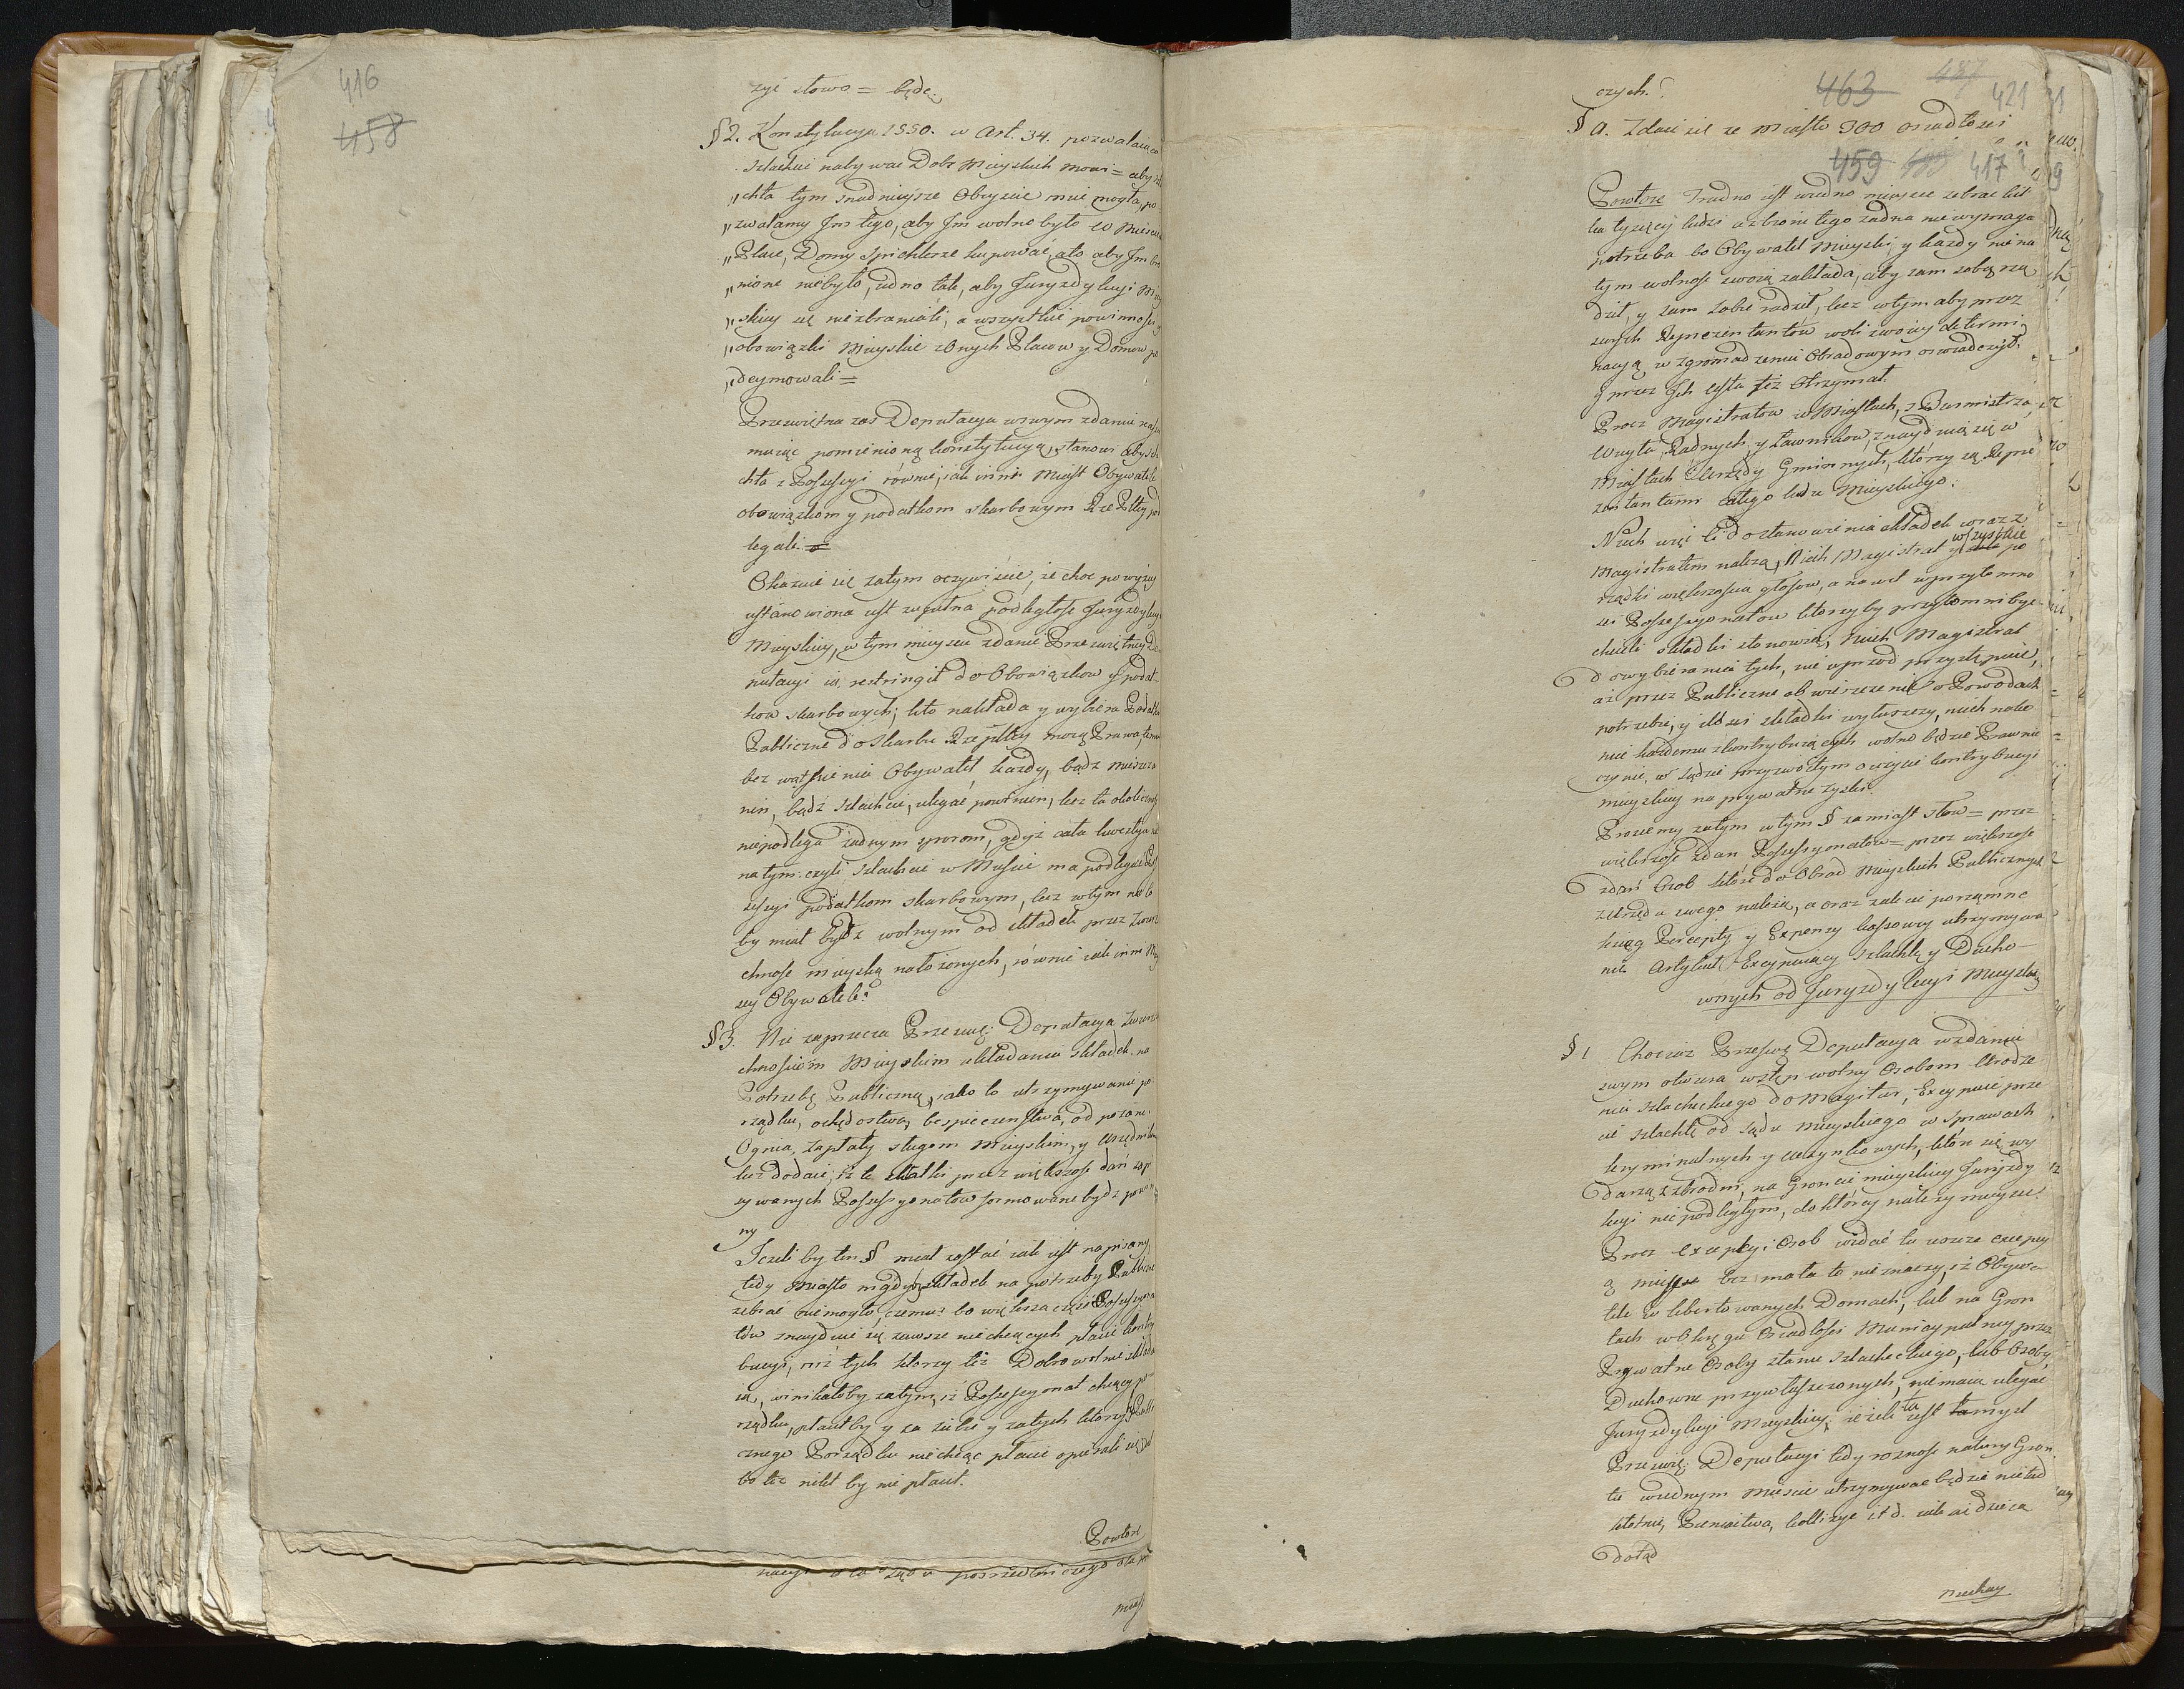 416
458
żyć słowo = będę.
§ 2. Konstytucya 1550. w Art. 34. pozwalaiąca
Szlachcie nabywać Dobr Mieyskich mowi = aby szla
„chta tym snadnieysze Obeyscie mieć mogła, po
„zwalamy Jm tego, aby Jm wolno było w Miescie
„Place, Domy Spichlerze kupować, ato aby Jm bro
„nione niebyło, iedno tak, aby Juryzdykcyi Miey
„skiey się niezbraniali, a wszystkie powinnosci y
„obowiązki Mieyskie z Onych Placow y Domow po
„deymowali =
Przeswietna zas Deputacya w swym zdaniu
maiąc pomienioną konstytucyą, stanowi aby szla
chta z Possessyi rownie, iak inni Miast Obywatele
obowiązkom y podatkom skarbowym Rzepltey pod
legali. =
Okazuie się zatym oczywiscie, że choć powyżey
ustanowiona iest zupełna podległość Juryzdykcyi
Mieyskiey, w tym mieyscu zdanie Przeswietney De
putacyi ią restringit do Obowiązkow y podat
kow skarbowych; kto nakłada y wybiera Podatki
Publiczne do Skarbu Rzepltey mocą Prawa, temu
bez wątpienia Obywatel każdy, bądz mieszcza
nin, bądź szlachcic, ulegać powinien, lecz ta okolicznosć
niepodlega żadnym sporom, gdyż cała kwestya
na tym: czyli szlachcic w Miescie ma podlegać z Po
ssessyi podatkom skarbowym, lecz w tym
by miał bydz wolnym od składek przez zwierz
chność mieyską nałożonych, rownie iak inni Miey
scy Obywatele?
§ 3. Nie zaprzecza Przeswię: Deputacya Zwierz
chnosciom Mieyskim układania składek na
Potrzebę Publiczną, iako to utrzymywanie po
rządku, ochędostwa, bespieczenstwa, od pożaru
Ognia, zapłaty sługom Mieyskim, y Urzędnikom
lecz dodaie, iż te składki przez większość zdań
zywanych Possessyonatow formowane bydz powin
ny
Jeżeli by ten § miał zostać iak iest napisany
tedy Miasto nigdy składek na potrzeby Publiczne
zebrać niemogło, czemu? bo większa część Possessyona
tow znayduie się zawsze niechcących płacić kontry
bucyi, niż tych ktorzy też Dobrowolnie składa
ią, winikałoby zatym, iż Possessyonat chcący po
rządku, płaciłby y za siebie y za tych ktorzy Publi
cznego Porządku niechcąc płacić opierali się,
bo też nikt by nie płacił.
Powtore
nacyi o to Sądu posrzedniczego dla
miey
czych.?
463 487 421
§ a. Zdaie się że Miasto 300 osiadłości
459 417
Powtore Trudno iest w iedno mieysce zebrać kil
ka tysięcy ludzi a zbronie tego żadna nie wymaga
potrzeba bo Obywatel Mieyski, y każdy nie na
tym wolność swoią zakłada, aby sam sobą rzą
dził, y sam sobie radził, lecz w tym aby przez
swych Reprezentantow woli swoiey determi
nacyą w zgromadzeniu Obradowym oswiadczył,
y przez Ich usta też Otrzymał.
Procz Magistratow w Miastach, z Burmistrza
Woyta, Radnych, y Ławnikow, znayduią się w
Miastach Urzędy Gminnych, ktorzy są Repre
zentantami całego ludu Mieyskiego.
Niech więc ci do stanowienia składek wraz z
Magistratem należą, Niech Magistrat y wszystkie po
rządki większoscia głosow, a nawet w przytomno
sci Possessyonatow ktorzyby przytomni być
chcieli składki stanowią, niech Magistrat
do wybierania tych, nie wprzod przystąpuie,
aż przez Publiczne obwieszczenie o Powodach
potrzebie, y ilosci składki wytuszczy, niech nako
niec każdemu z kontrybuiących wolno będzie Prawnie
czynić w Sądzie przyzwoitym o użycie kontrybucyi
mieyskiey na prywatne zyski.
Prosiemy zatym w tym § zamiast słow = przez
większość zdan Possessyonatow = przez większość
zdań Osob ktore do Obrad Mieyskich Publicznych
z Urzędu swego należą, a oraz zalecić porządne
ksiąg Percepty y Expensy kassowey utrzymywa
nie. Artykuł Excypuiący szlachtę y Ducho-
wnych od Juryzdykcyi Mieyskiey
§ 1 Chociaż Przeswię: Deputacya w zdaniu
swym otwiera wstęp wolny Osobom Urodze
nia szlacheckiego do Magistr, Excypuie prze
cie szlachtę od Sądu mieyskiego w sprawach
kryminalnych y uczynkowych, ktore się wy
darzą z zbrodni, na Gruncie mieyskiey Juryzdy
kcyi niepodległym, do ktorey należy mieysce.
Procz excepcyi Osob widać tu ieszcze excepcy
ą mieysc bez mała to nieznaczy, iż Obywa
tele w libertowanych Domach, lub na Grun
tach w Okręgu Osiadłosci Municypalney przez
Prywatne Osoby stanu szlacheckiego, lub Osoby
Duchowne przywłaszczonych, nie maią ulegać
Juryzdykcyi Mieyskiey; ieżeli ta iest myśl
Przeswię: Deputacyi tedy rożnosc natury Grun
tu w iednym Miescie utrzymywać będzie nietrud
kłotnie, Pieniactwa, kollizye itd. iak się dzieie
dotąd
niechay